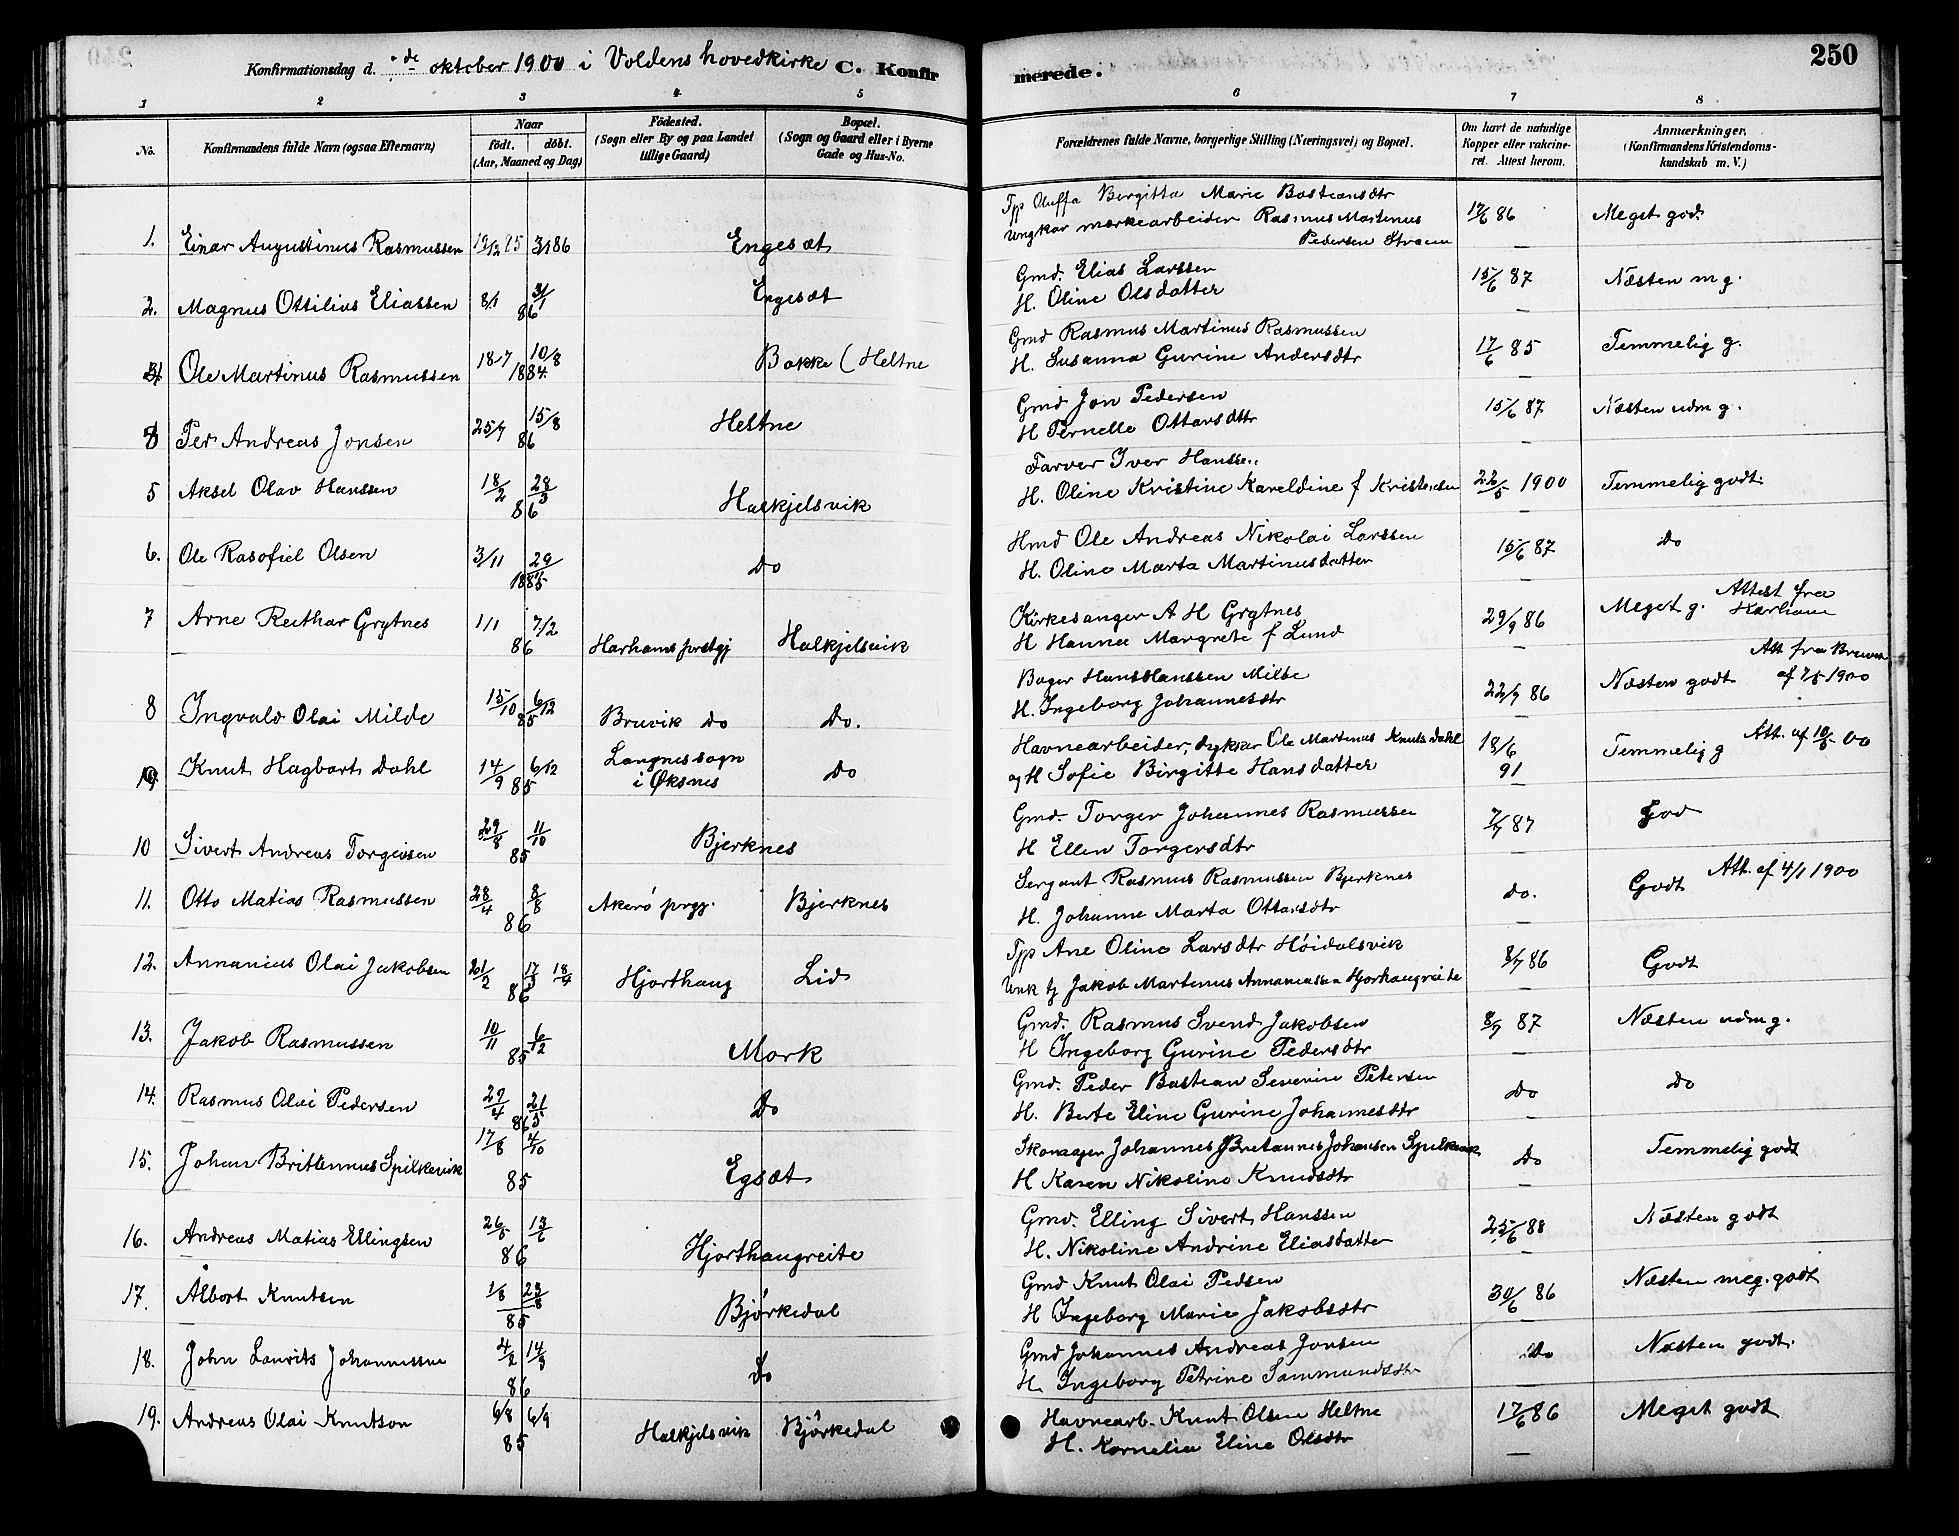 Konfirmationsdag d. oktober 1900 i Voldens hovedkirke C. Konfirmerede. 250
1 2 3 4 5 6 7 8
No. Konfirmandens fulde Navn (ogsaa Efternavn) Naar født. døbt. (Aar, Maaned og Dag) Födested. (Sogn eller By og paa Landet tillige Gaard) Bopæl. (Sogn og Gaard eller i Byerne Gade og Hus-No. Forældrenes fulde Navne, borgerlige Stilling (Næringsvei) og Bopæl. Om havt de naturlige Kopper eller vakcineret. Attest herom. Anmærkninger. (Konfirmandens Kristendomskundskab m. V.)
1. Einar Augustinus Rasmussen 19/12 85 3/1 86 Engesæt Birgitta Marie Bastiansdtr 17/6 86 Meget god
Ungkar Rasmus Martinus
Pedersen
2. Magnus Ottilius Eliassen 8/1 31/1 86 Engesæt Gmd. Elias Larssen 15/6 87 Næsten m g.
H. Oline Olsdatter
3 Ole Martinus Rasmussen 18-7 10/8 1884. Bakke (Heltne Gmd Rasmus Martinus Rasmussen 17/6 85 Temmelig g.
H. Susanna Gurine Andersdtr
Per Andreas Jonsen 25/7 15/8 86 Heltne Gmd Jon Pedersen 15/6 87 Næsten udm g.
H Pernelle Ottarsdtr
5 Aksel Olav Hanssen 18/2 28/3 86 Halkjelsvik Farver Iver Hanssen 22/5 1900 Temmelig godt.
H. Oline Kristine Kareldine f Kristensen
6. Ole Rasofiel Olsen 3/11 29/ 1885 do Hmd Ole Andreas Nikolai Larssen 15/6 87 do
H. Oline Marta Martinusdatter
7 Arne Reithar Grytnes 1/1 7/2 86 Harhams prstgj Halkjelsvik Kirkesanger A H Grytnes 29/9 86 Meget g. Attest fra Harham
H Hanna Margrete f Lund
8 Ingvald Olai Milde 15/10 6/12 85 Bruvik do Do. Bager Hans Hanssen Milde 22/7 86 Næsten godt Att. fra Bruvik af 7/5 1900
H. Ingeborg Johannesdtr
9 Knut Hagbart Dahl 14/9 6/12 85 Langnes sogn i Øksnes do Havnearbeider, dykker Ole Martinus Knuts Dahl 18/6 91 Temmelig g Att. af 10/5 00
og H Sofie Birgitte Hansdatter
10 Sivert Andreas Torgersen 29/8 11/10 85 Bjerknes Gmd. Torger Johannes Rasmussen 7/7 87 God
H Ellen Torgersdtr
11. Otto Matias Rasmussen 28/4 8/8 86 Akerø prgj. Bjerknes Sergant Rasmus Rasmussen Bjerknes do. Godt Att. af 4/1 1900
H. Johanne Marta Ottarsdtr
12. Annanias Olai Jakobsen 21/2 17/3 18/4 86 Hjorthaug Lid Ane Oline Larsdtr Høidalsvik 8/7 86 Godt
Unk tj Jakob Martinus Annaniassen Hjorthaugreite
13. Jakob Rasmussen 10/11 6/12 85 Mork Gmd. Rasmus Svend Jakobsen 8/7 87 Næsten udm g.
H Ingeborg Gurine Pedersdtr
14. Rasmus Olai Pedersen 29/4 21/5 86 Do Gmd. Peder Bastian Severin Petersen do do
H. Berte Eline Gurine Johannesdtr
15. Johan Brittennus Spilkevik 17/8 4/10 85 Egsæt Skomager Johannes Bretannes Johansen Spilkevik Do Temmelig godt
H Karen Nikoline Knudsdtr
16. Andreas Matias Ellingsen 26/5 13/6 86 Hjorthaugreite Gmd. Elling Sivert Hanssen 25/6 88 Næsten godt
H. Nikoline Andrine Eliasdatter
17. Albert Knutsen 1/8 23/8 85 Bjørkedal Gmd Knut Olai Pedsen 30/6 86 Næsten meg. godt
H Ingeborg Marie Jakobsdtr
18. John Laurits Johannessen 4/2 14/3 86 Do Gmd Johannes Andreas Jonsen Do Næsten godt.
H. Ingeborg Petrine Sammundsdtr
19. Andreas Olai Knutson 6/8 6/9 85 Halkjelsvik Bjørkedal Havnearb. Knut Olsen Heltne 17/6 86 Meget godt
H. Kornelia Eline Olsdtr